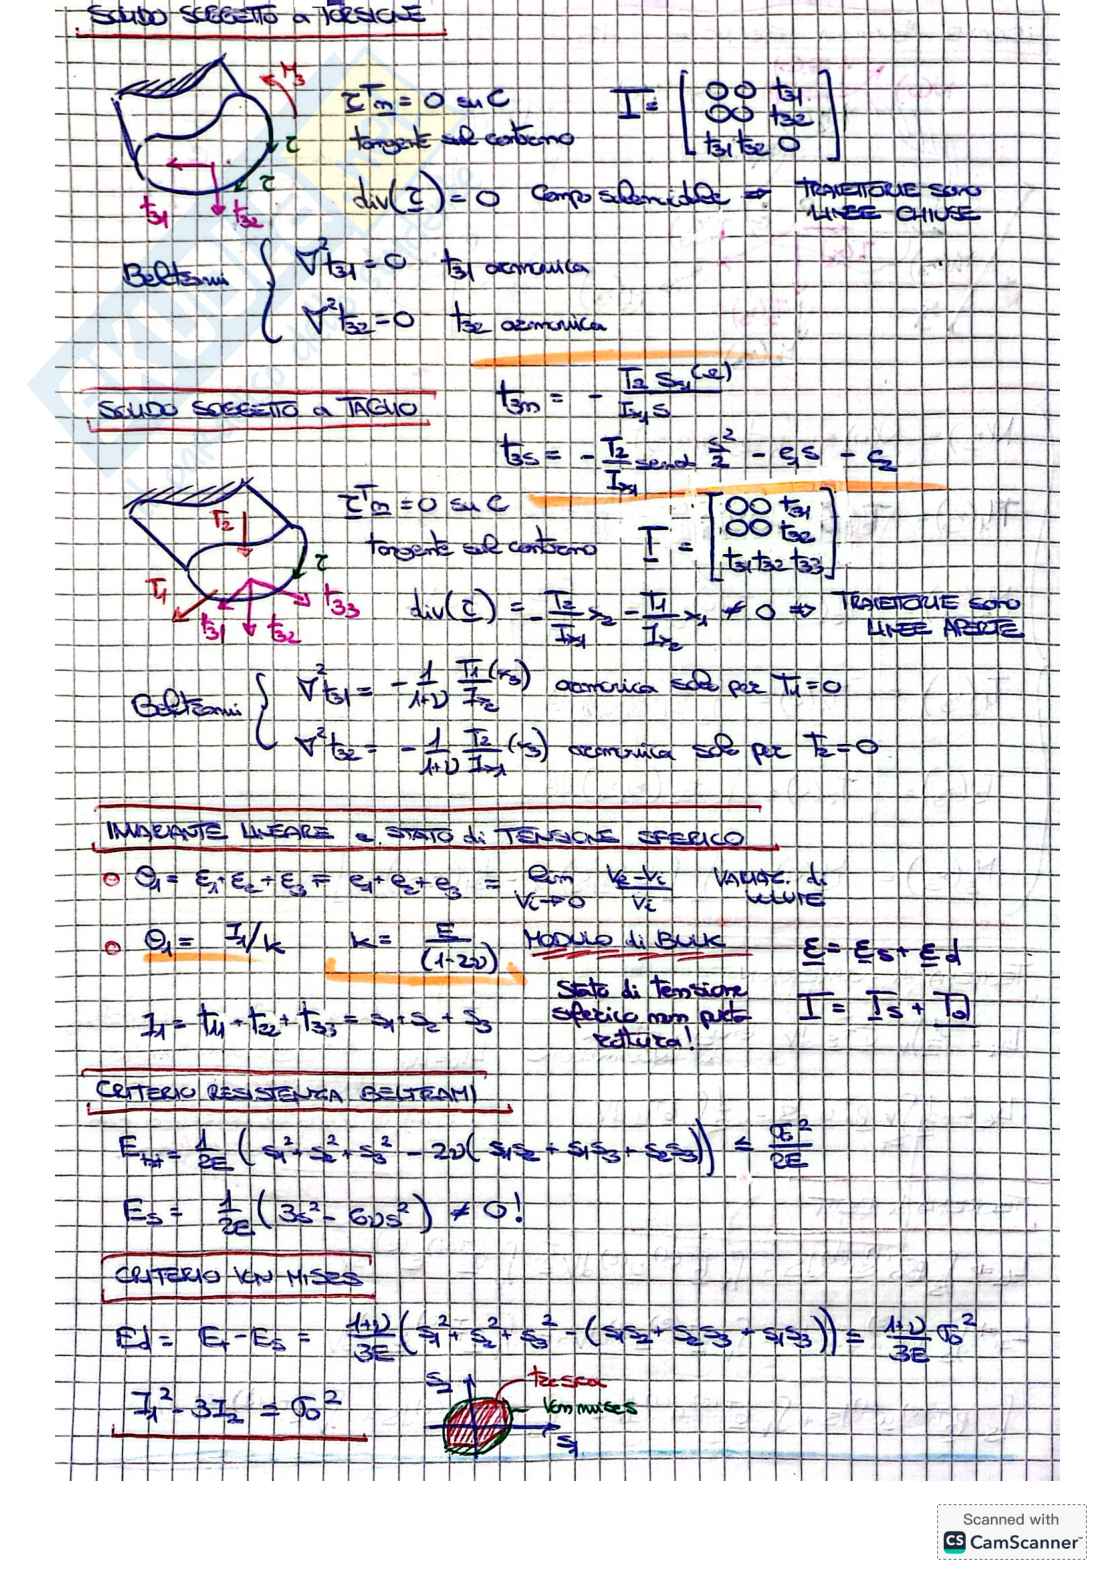 SOLIDO SOGGETTO a TORSIONE
M3
τ^T n = 0 su C
tangente sul contorno
T = [ 0 0 t31
0 0 t32
t31 t32 0 ]
τ
τ
t31
t32
div(τ) = 0 Campo solenoidale ⇒ TRAIETTORIE SONO LINEE CHIUSE
Beltrami { ∇²t31 = 0 t31 armonica
∇²t32 = 0 t32 armonica
SOLIDO SOGGETTO a TAGLIO
t3n = - T2 Sx1(e) / Ix1 s
t3s = - T2/Ix1 senα s²/2 - c1s - c2
τ^T n = 0 su C
tangente sul contorno
T = [ 0 0 t31
0 0 t32
t31 t32 t33 ]
T2
T1
τ
t31
t32
t33
div(τ) = - T2/Ix1 x2 - T1/Ix2 x1 ≠ 0 ⇒ TRAIETTORIE SONO LINEE APERTE
Beltrami { ∇²t31 = - 1/1+ν T1/Ix2 (x3) armonica solo per T1 = 0
∇²t32 = - 1/1+ν T2/Ix1 (x3) armonica solo per T2 = 0
INVARIANTE LINEARE e STATO di TENSIONE SFERICO
Θ1 = ε1 + ε2 + ε3 = e1 + e2 + e3 = lim Vi→0 Vf-Vi / Vi VARIAZ. di VOLUME
Θ1 = I1/k k = E / (1-2ν) MODULO di BULK
ε = εs + εd
I1 = t11 + t22 + t33 = s1 + s2 + s3
Stato di tensione
sferico non porta
rottura!
T = Ts + Td
CRITERIO RESISTENZA BELTRAMI
Etot = 1/2E ( s1² + s2² + s3² - 2ν( s1s2 + s1s3 + s2s3)) ≤ σ0²/2E
Es = 1/2E ( 3s² - 6νs² ) ≠ 0!
CRITERIO VON MISES
Ed = Et - Es = 1+ν/3E ( s1² + s2² + s3² - (s1s2 + s2s3 + s1s3)) = 1+ν/3E σ0²
I1² - 3I2 = σ0²
s2
s1
tresca
Von mises
Scanned with
CS CamScanner